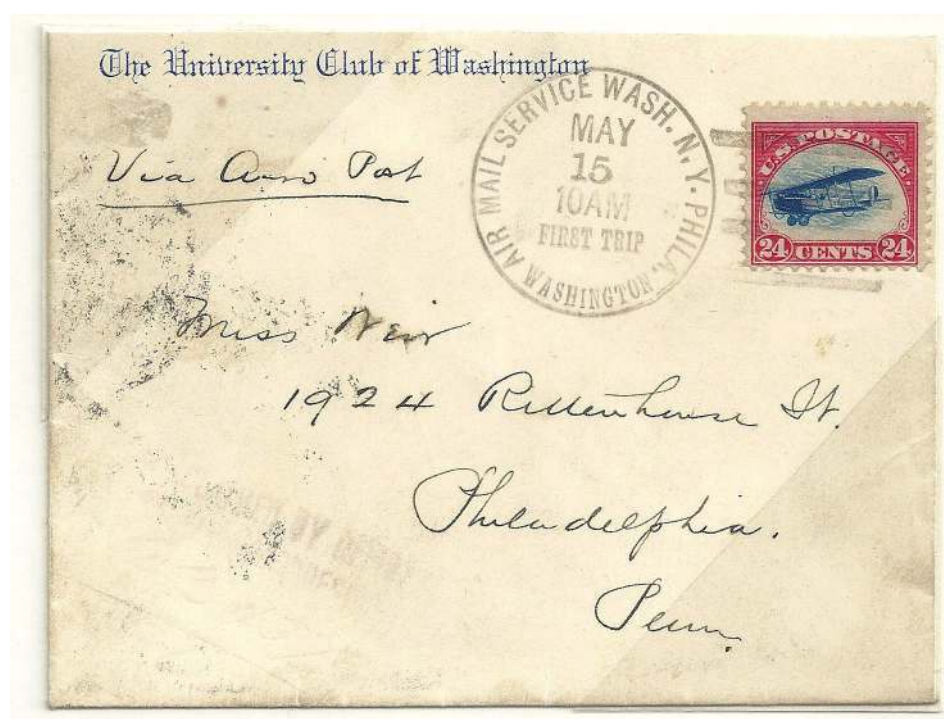 The University Club of Washington
AIR MAIL SERVICE WASH. N.Y. PHILA.
MAY
15
10AM
FIRST TRIP
WASHINGTON
U.S. POSTAGE
24 CENTS 24
Via Aero Post
Miss Weir
1924 Rittenhouse St.
Philadelphia.
Penn